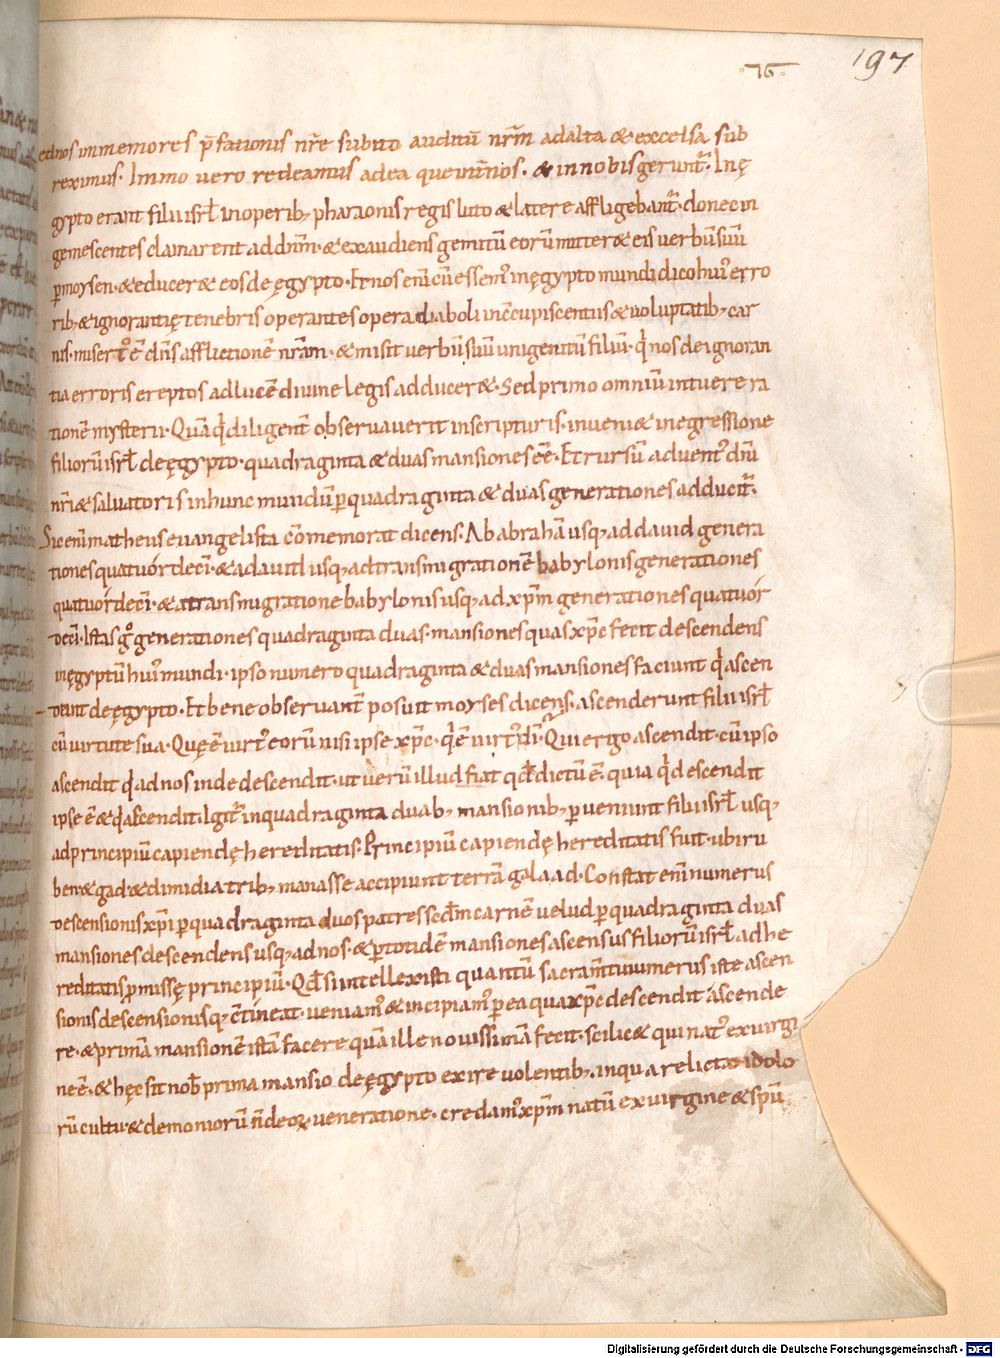 ·76·
197
ednos inmemores p̄fationis nr̄e subito auditū nr̄m ad alta & excelsa sub
reximus. Immo vero redeamus ad ea que in n̄nos. & in nobis gerunt᷑. In ę
gypto erant filii isrl̄ in operib; pharaonis regis luto & latere affligebant᷑. donec in
gemescentes clamarent ad dn̄m. & exaudiens gemitū eorū mitter& eis verbū suū
ꝑ moysen. & educer& eos de ęgypto. Et nos eni cū essem᷒ in ęgypto mundi dico hui᷒ erro
rib; & ignorantię tenebris operantes opera diaboli in c̄cupiscentiis & voluptatib; car
nis. misert᷒ ē dn̄s afflictionē nr̄am. & misit verbū suū unigenitū filiū. q̇ nos de ignoran
tia erroris ereptos ad lucē divine legis adducer&. Sed primo omniū intuere ra
tionē mysterii. Quā q̇ diligent᷑ observaverit in scripturis. inveni& in egressione
filiorū isrl̄ de ęgypto. quadraginta & duas mansiones ēē. Et rursū advent᷒ dn̄i
nr̄i & salvatoris in hunc mundū ꝑ quadraginta & duas generationes adducit᷑.
Sic eni matheus evangelista cōmemorat dicens. Ab abrahā usq; ad david genera
tiones quatuórdeci. & a david usq; ad transmigrationē babylonis generationes
quatuórdeci. & a transmigratione babylonis usq; ad xp̄m generationes quatuór
deci. Istas gͦ generationes quadraginta duas. mansiones quas xp̄c fecit descendens
in ęgyptū hui᷒ mundi. ipso numero quadraginta & duas mansiones faciunt q̇ ascen
dunt de ęgypto. Et bene observant᷑ posuit moyses dicens. ascenderunt filii isrl̄
cū virtute sua. Quę ē virt᷒ eorū nisi ipse xp̄c. q̇ ē virt᷒ dī. Qui ergo ascendit. cū ipso
ascendit q̇ ad nos inde descendit. ut verū illud fiat qd̄ dictū ē. quia q̇ descendit
ipse ē & q̇ ascendit. Igit᷑ in quadraginta duab; mansionib; ꝑveniunt filii isrl̄ usq;
ad principiū capiendę hereditatis. Principiū capiendę hereditatis fuit. ubi ru
ben & gad & dimidia trib; manasse accipiunt terrā galaad. Constat eni numerus
descensionis xp̄i ꝑ quadraginta duos patres scd̄m carnē velud ꝑ quadraginta duas
mansiones descendens usq; ad nos. & ꝑ totidē mansiones ascensus filiorū isrl̄ ad he
reditatis ꝓmissę principiū. Qd̄ si intellexisti quantū sacram̄ti numerus iste ascen
sionis descensionisq; c̄tineat. veniam᷒ & incipiam᷒ ꝑ ea qua xp̄c descendit áscende
re. & primā mansionē istā facere quā ille novissimā fecit. scilic& qui nat᷒ ex virgi
ne ē. & hęc sit nob̄ prima mansio de ęgypto exire volentib;. in qua relicto idolo
rū cultu. & demoniorū n̄ deoꝝ. veneratione. credam᷒ xp̄m natū ex virgine & sp̄u
Digitalisierung gefördert durch die Deutsche Forschungsgemeinschaft - DFG